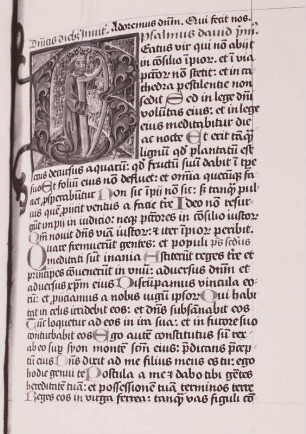 Dn̄icis dieb; īnuit. Adoremus dn̄m. Qui fecit nos.
psalmus david pm̄.
Eatus vir qui nō abijt
in cōsilio īpior: et ī via
pctōr nō stetit: et in ca
thedra pestilentie non
sedit Sed in lege dn̄i
volūtas eius: et in lege
eius meditabitur die
ac nocte Et erit tāq̄
lignū qd plantatū est
secus decursus aquarū: qd fructū suū dabit ī tp̄e
suo Et foliū eius nō defluet: et omīa quecūq; fa
ciet, psperabūtur Non sic īpij nō sic: s; tanq̄ pul
uis quē proicit ventus a facie tr̄e Ideo nō resur
gūt impij in iudicio: neq; pctōres in cōsilio iustor:
Qm̄ nouit dn̄s viā iustor: et iter īpior peribit.
Quare fremuerūt gentes: et populi ps̄ sedūs
meditati sūt inania Astiterūt reges tr̄e et
principes cōuenerūt in vnū: adversus dn̄m et
adversus xp̄m eius Disrūpamus vincula eo
rū: et proiciamus a nobis iugū ipsor Qui habi
tat in celis irridebit eos: et dn̄s subsānabit eos
Tūc loquetur ad eos in ira sua: et in furore suo
conturbabit eos Ego autē constitutus sū rex
ab eo sup syon montē scm̄ eius: p̄dicans p̄cep
tū eius Dn̄s dixit ad me filius meus es tu: ego
hodie genui te Postula a me et dabo tibi gētes
hereditatē tuā: et possessionē tuā terminos terre
Reges eos in virga ferrea: tanq̄ vas figuli cō